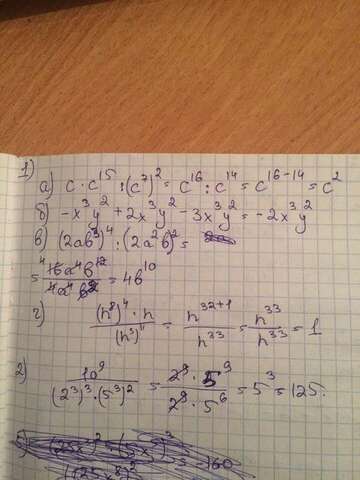 1)
а) c · c¹⁵ : (c⁷)² = c¹⁶ : c¹⁴ = c¹⁶⁻¹⁴ = c²
б) -x³y² + 2x³y² - 3x³y² = -2x³y²
в) (2ab³)⁴ : (2a²b)² =
= 16a⁴b¹² / 4a⁴b² = 4b¹⁰
г) (n⁸)⁴ · n / (n³)⁴ = n³²⁺¹ / n³³ = n³³ / n³³ = 1
2) 10⁹ / (2³)³ · (5³)² = 2⁹ · 5⁹ / 2⁹ · 5⁶ = 5³ = 125.